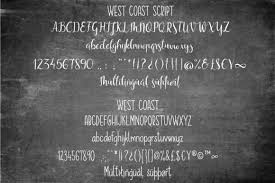 WEST COAST SCRIPT
ABCDEFGHIJKLMNOPQRSTUVWXYZ
abcdefghijklmnopqrstuvwxyz
1234567890
Multilingual support
WEST COAST
ABCDEFGHIJKLMNOPQRSTUVWXYZ
abcdefghijklmnopqrstuvwxyz
1234567890
Multilingual support